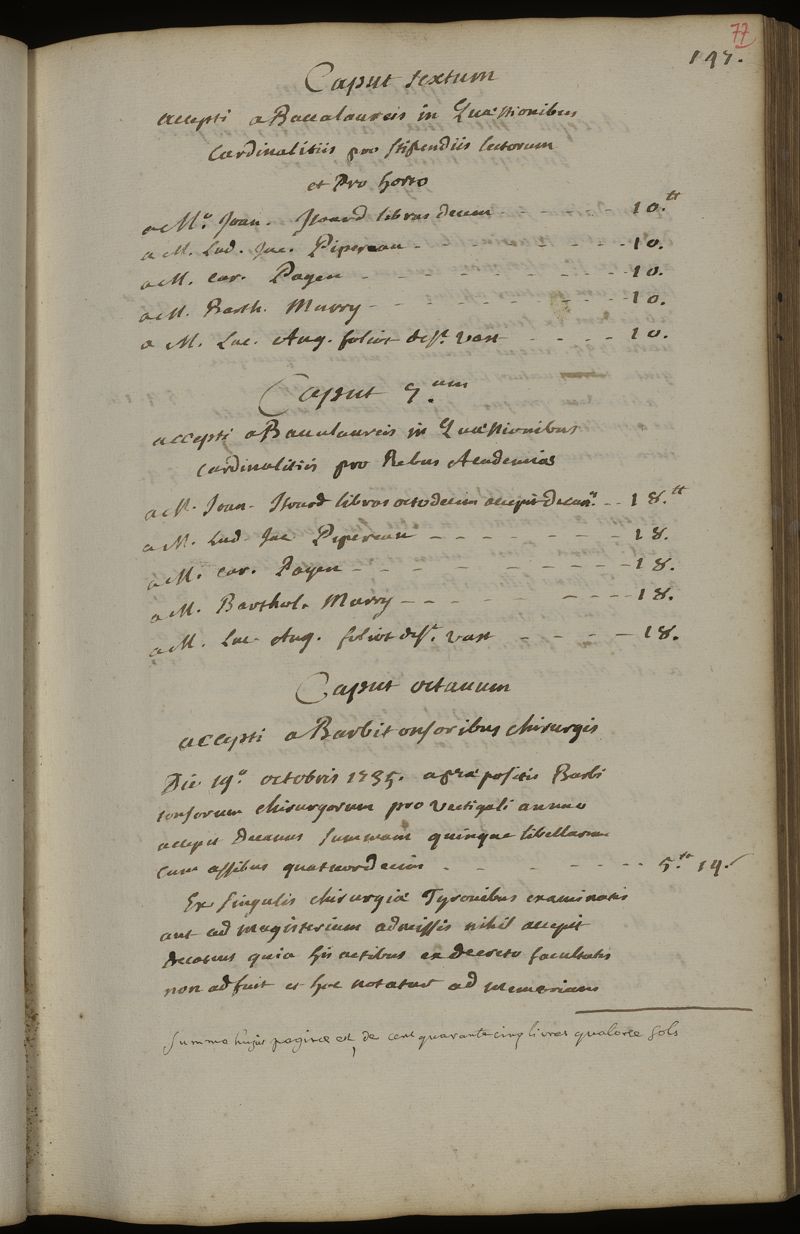 77
147.
Caput sextum
accepti a Baccalaureis in Quæstionibus
Cardinalitiis pro stipendiis lectorum
et Pro horto
a M.º Joan. Isoard libras decem - - - - - 10.tt
a M. Lud. Jac. Pipereau - - - - - - - 10.
a M. Car. Payen - - - - - - - - - 10.
a M. Barth. Murry - - - - - - - - 10.
a M. Luc. Aug. foliot de St. vast - - - - 10.
Caput 7.um
accepti a Baccalaureis in Quæstionibus
Cardinalitiis pro Rebus Academiæ
a M. Joan. Isoard libras octodecim accepit Decan.s - - 18.tt
a M. Lud. Jac Pipereau - - - - - - - 18.
a M. Car. Payen - - - - - - - - - 18.
a M. Barthol. Murry - - - - - - - - 18.
a M. Luc. Aug. foliot de St. vast - - - - 18.
Caput octauum
accepti a Barbitonsoribus chirurgis
Die 19.º octobris 1735. a præpositis Barbi
tonsorum chirurgorum pro vectigali annuo
accepit Decanus summam quinque libellarum
cum assibus quatuordecim - - - - - - - - 5.tt 14.s
Ex singulis chirurgiæ Tyronibus examinatis
aut ad magisterium admissis nihil accepit
Decanus quia his actibus ex decreto facultatis
non adfuit et hoc notatur ad memoriam
Summa hujus paginæ est, de cent quarante cinq livres quatorze sols